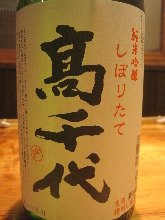 純米吟醸
しぼりたて
髙千代